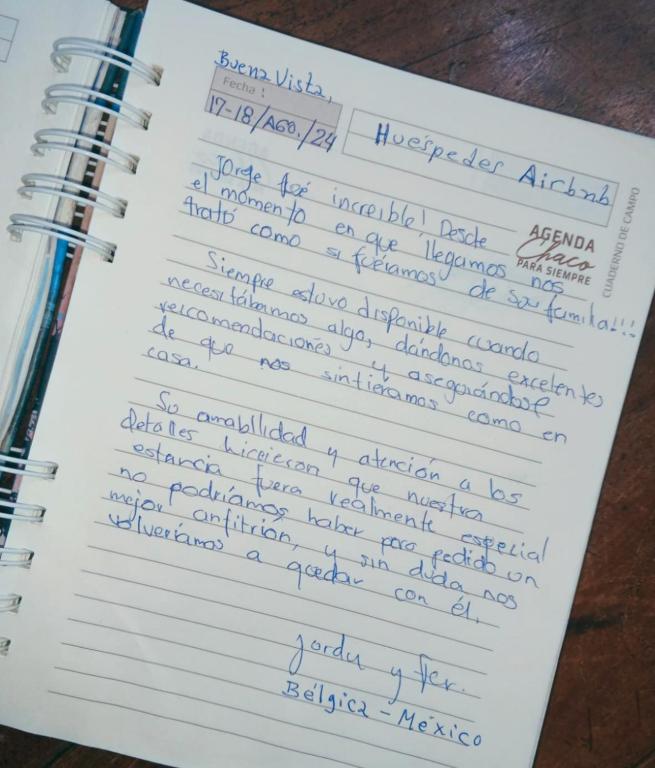 Buena Vista,
Fecha:
17-18/AGO./24
Huéspedes Airbnb
AGENDA
Chaco
PARA SIEMPRE
CUADERNO DE CAMPO
Jorge fué increíble! Desde
el momento en que llegamos nos
trató como si fuéramos de su familia!!!
Siempre estuvo disponible cuando
necesitábamos algo, dándonos excelentes
recomendaciones y asegurándose
de que nos sintiéramos como en
casa.
Su amabilidad y atención a los
detalles hicieron que nuestra
estancia fuera realmente especial
no podríamos haber pedido un
mejor anfitrión, y sin duda nos
volveríamos a quedar con él.
y Fer.
Bélgica - México